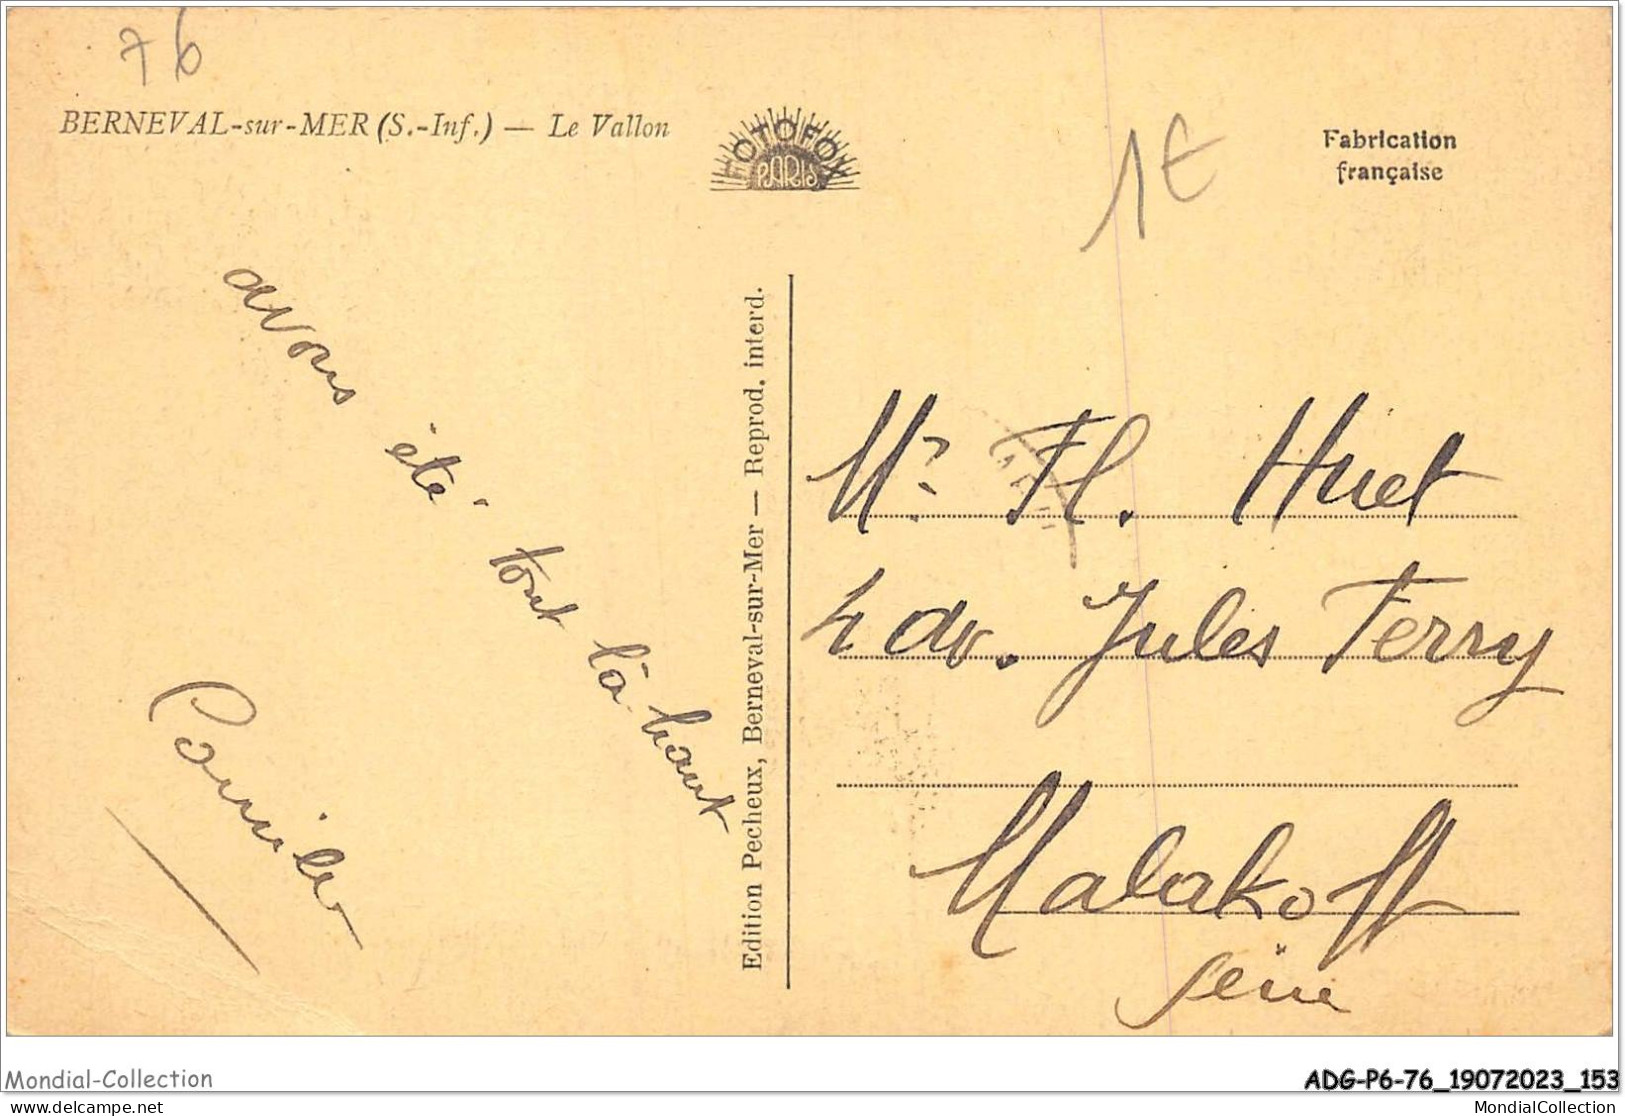 76
BERNEVAL-sur-MER (S.-Inf.) — Le Vallon
FOTOFOX
PARIS
1€
Fabrication
française
avons été tout là-haut
Camille
Edition Pecheux, Berneval-sur-Mer — Reprod. interd.
Mr Fl. Huet
av. Jules Ferry
Malakoff
Seine
Mondial-Collection
ADG-P6-76_19072023_153
MondialCollection
www.delcampe.net